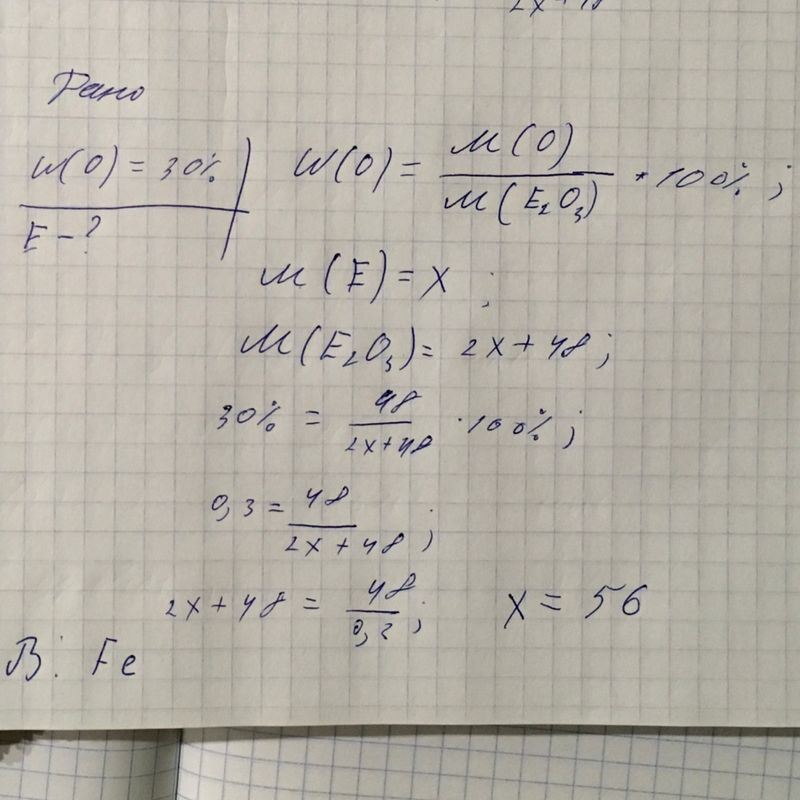 2x+48
Дано
W(O) = 30%
E - ?
W(O) = M(O) / M(E₂O₃) * 100% ;
M(E) = x ;
M(E₂O₃) = 2x + 48 ;
30% = 48 / 2x+48 · 100% ;
0,3 = 48 / 2x + 48 ;
2x + 48 = 48 / 0,3 ; x = 56
В: Fe